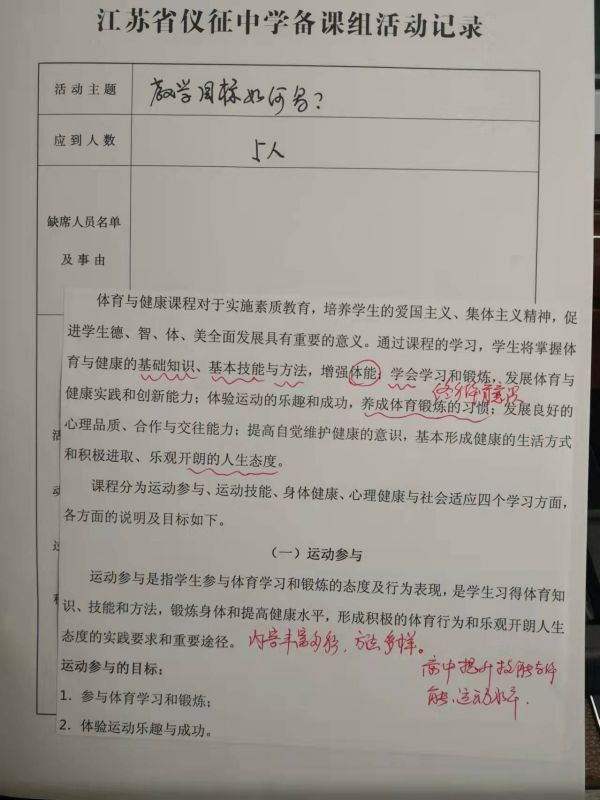 江苏省仪征中学备课组活动记录
活动主题 教学目标如何写?
应到人数 5人
缺席人员名单
及事由
体育与健康课程对于实施素质教育，培养学生的爱国主义、集体主义精神，促
进学生德、智、体、美全面发展具有重要的意义。通过课程的学习，学生将掌握体
育与健康的基础知识、基本技能与方法，增强体能；学会学习和锻炼，发展体育与
终身体育意识
健康实践和创新能力；体验运动的乐趣和成功，养成体育锻炼的习惯；发展良好的
心理品质、合作与交往能力；提高自觉维护健康的意识，基本形成健康的生活方式
和积极进取、乐观开朗的人生态度。
课程分为运动参与、运动技能、身体健康、心理健康与社会适应四个学习方面，
各方面的说明及目标如下。
（一）运动参与
运动参与是指学生参与体育学习和锻炼的态度及行为表现，是学生习得体育知
识、技能和方法，锻炼身体和提高健康水平，形成积极的体育行为和乐观开朗人生
态度的实践要求和重要途径。 内容丰富多彩，方法多样。
运动参与的目标：
高中提升技能
1. 参与体育学习和锻炼；
能、运动水平.
2. 体验运动乐趣与成功。
活
动
过